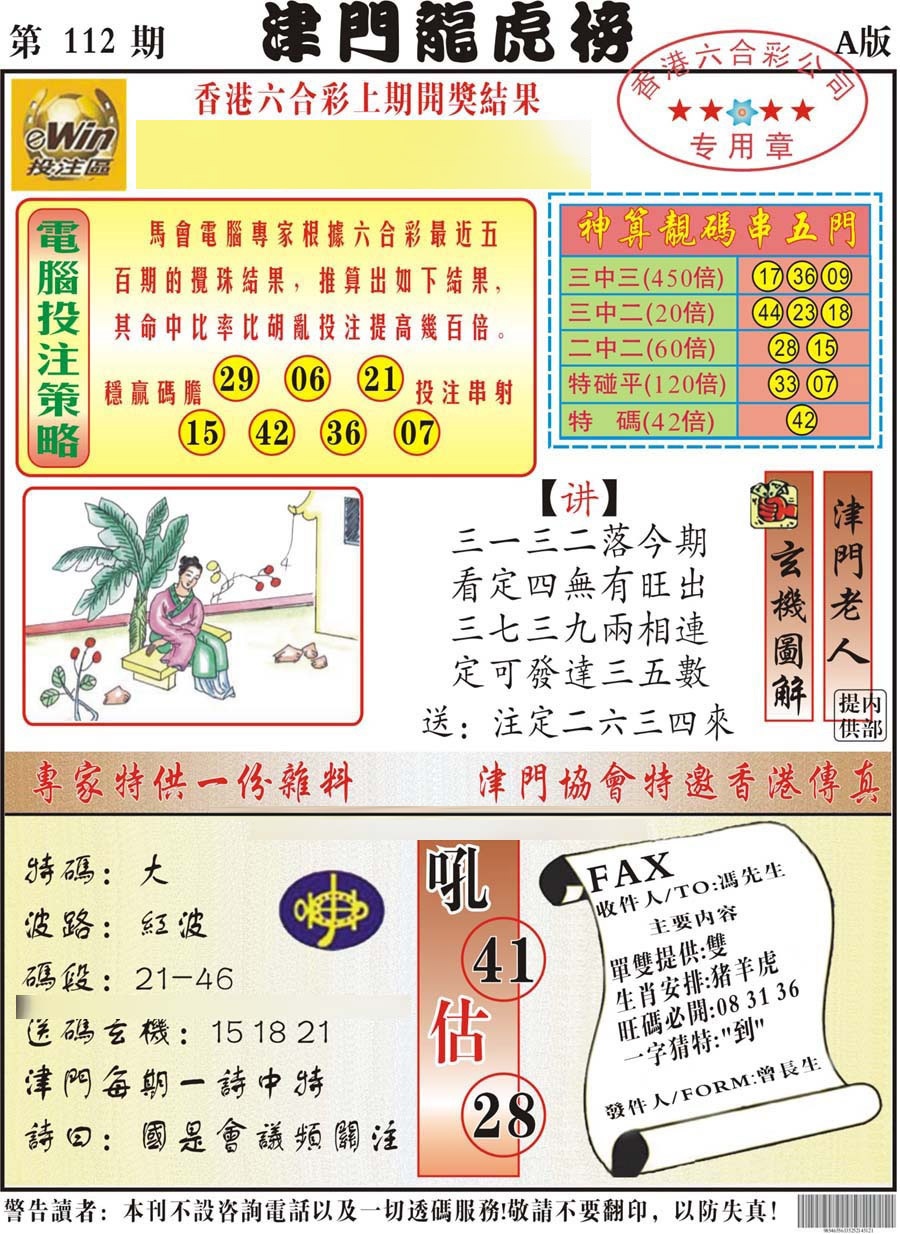 第 112 期
津門龍虎榜
A版
eWin
投注區
香港六合彩上期開獎結果
香港六合彩公司
专用章
電腦投注策略
馬會電腦專家根據六合彩最近五
百期的攪珠結果，推算出如下結果，
其命中比率比胡亂投注提高幾百倍。
穩贏碼膽 29 06 21 投注串射
15 42 36 07
神算靚碼串五門
三中三(450倍) 17 36 09
三中二(20倍) 44 23 18
二中二(60倍) 28 15
特碰平(120倍) 33 07
特 碼(42倍) 42
【讲】
三一三二落今期
看定四無有旺出
三七三九兩相連
定可發達三五數
送：注定二六三四來
玄機圖解
津門老人
内部提供
專家特供一份雜料
津門協會特邀香港傳真
特碼：大
波路：紅波
碼段：21-46
送碼玄機：15 18 21
津門每期一詩中特
詩曰：國是會議頻關注
吼
41
估
28
FAX
收件人/TO:馮先生
主要内容
單雙提供:雙
生肖安排:猪羊虎
旺碼必開:08 31 36
一字猜特:"到"
發件人/FORM:曾長生
警告讀者：本刊不設咨詢電話以及一切透碼服務!敬請不要翻印，以防失真!